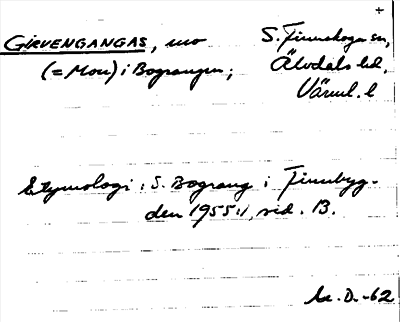 +
GIRVENGANGAS, mo
S. Finnskoga sn,
(= Mon) i Bograngen;
Älvdals hd,
Värml. l
Etymologi: S. Bograng i Finnbyg-
den 1955:1, sid. 13.
La. D. -62